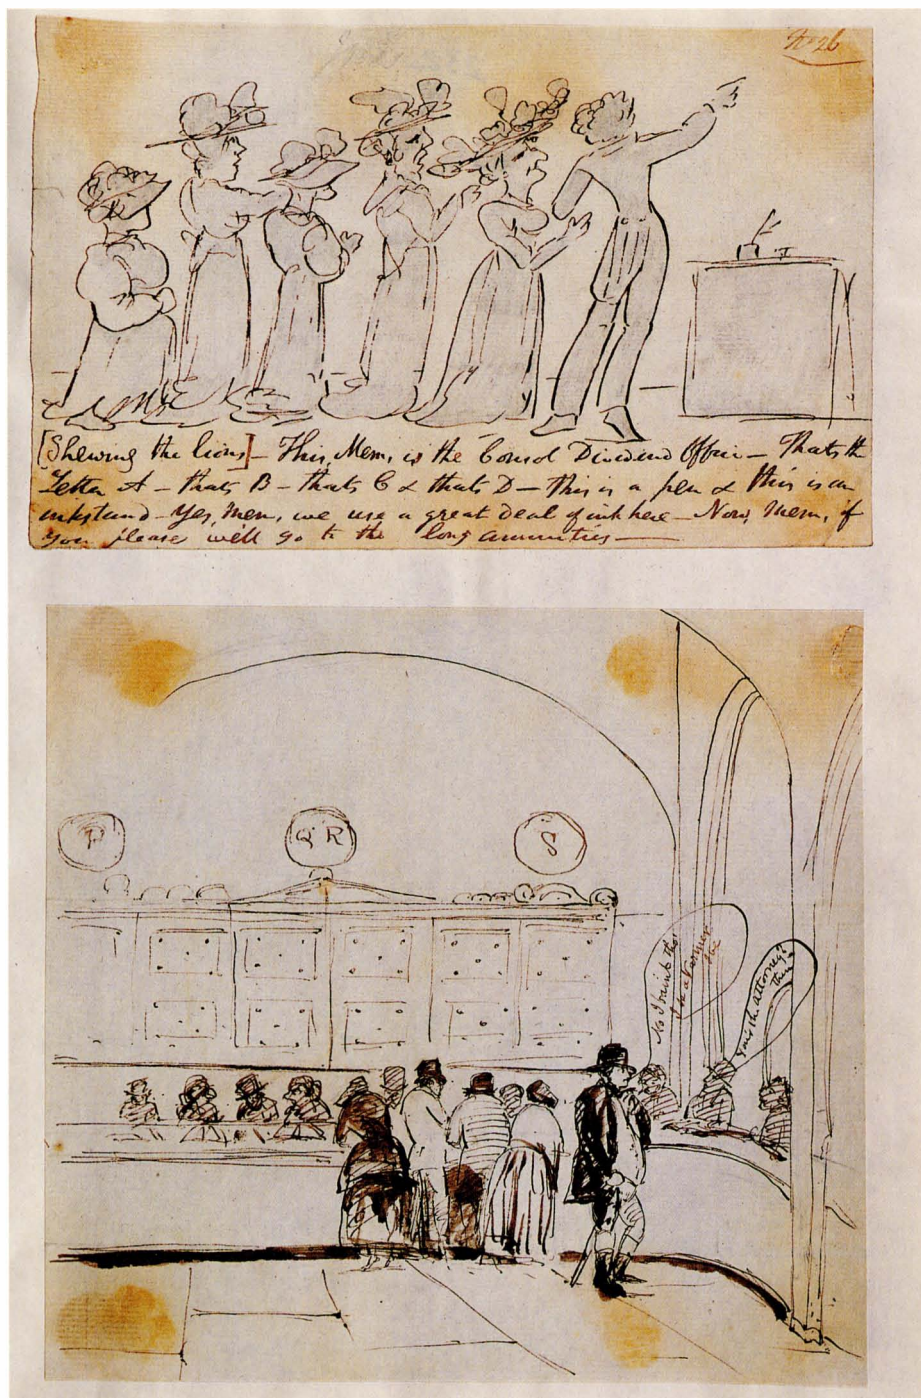 No 26
[Shewing the lions] – This, Mem, is the Consol Dividend Office – Thats the
Letter A – thats B – thats C & thats D – This is a pen & this is an
inkstand – Yes, Mem, we use a great deal of ink here – Now, Mem, if
you please we'll go to the long annuities –
P
Q R
S
No I rather tho'
a Farmer
Attorney's